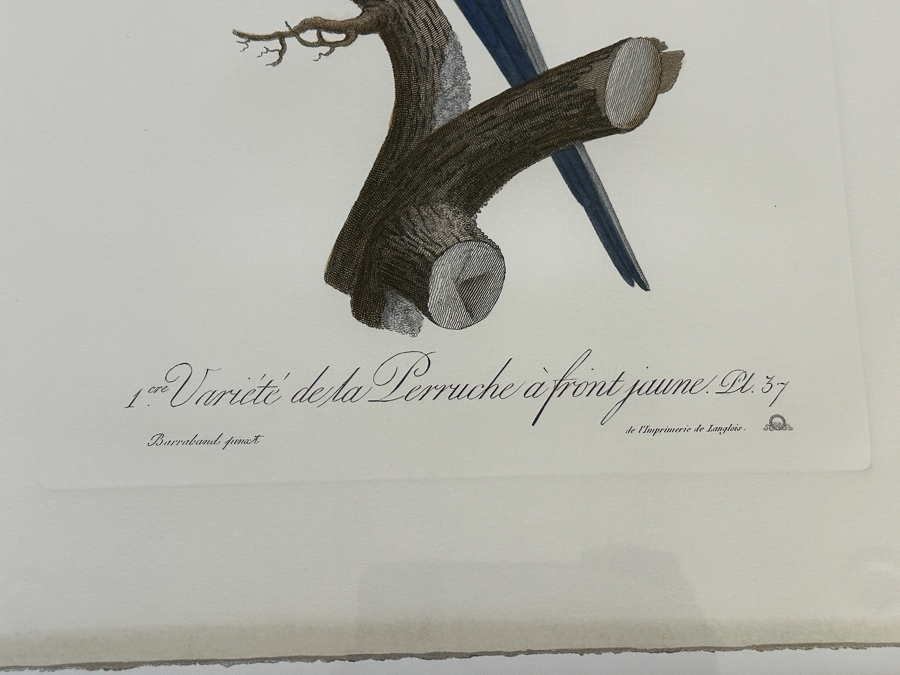 1.ere Variété de la Perruche à front jaune. Pl. 37
Barraband pinxt
de l'Imprimerie de Langlois.